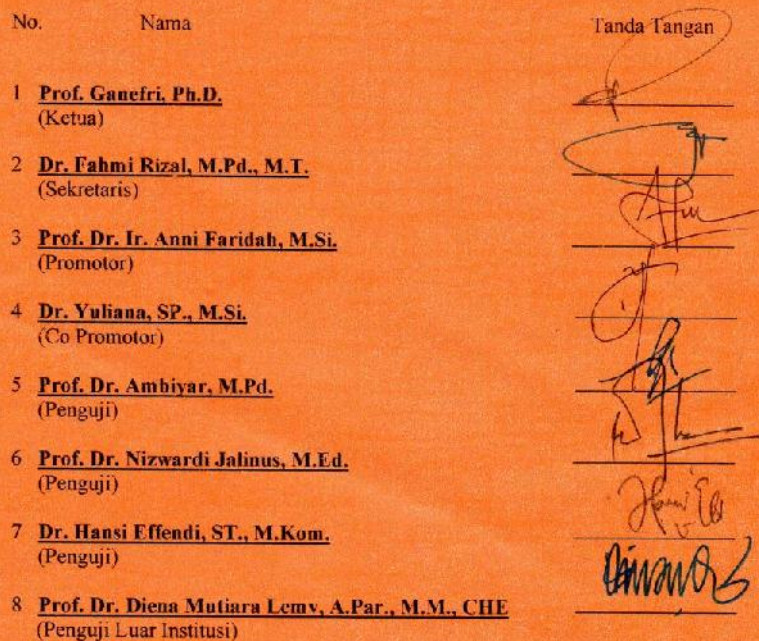 No. Nama Tanda Tangan
1 Prof. Ganefri, Ph.D.
(Ketua)
2 Dr. Fahmi Rizal, M.Pd., M.T.
(Sekretaris)
3 Prof. Dr. Ir. Anni Faridah, M.Si.
(Promotor)
4 Dr. Yuliana, SP., M.Si.
(Co Promotor)
5 Prof. Dr. Ambiyar, M.Pd.
(Penguji)
6 Prof. Dr. Nizwardi Jalinus, M.Ed.
(Penguji)
7 Dr. Hansi Effendi, ST., M.Kom.
(Penguji)
8 Prof. Dr. Diena Mutiara Lemy, A.Par., M.M., CHE
(Penguji Luar Institusi)